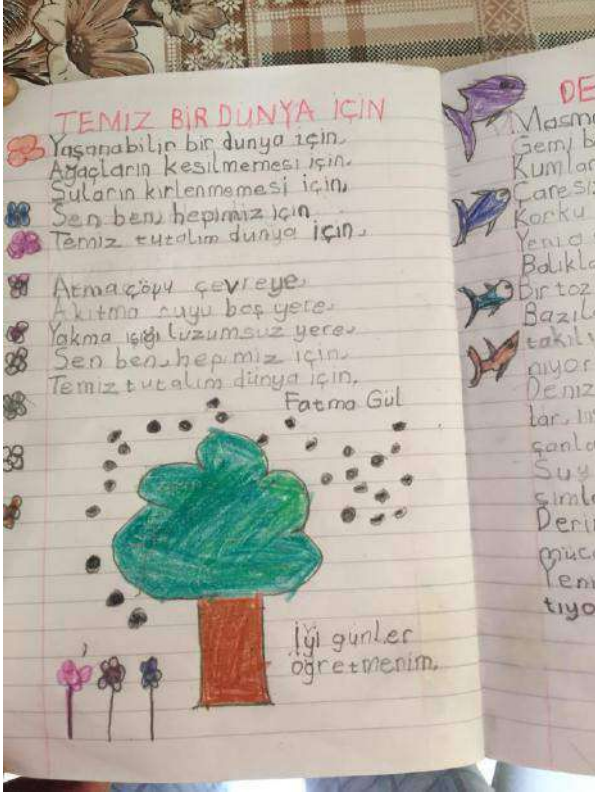 TEMIZ BİR DUNYA İÇİN
Yaşanabilir bir dunya için,
Ağaçların kesilmemesi için.
Suların kırlenmemesi için,
Sen ben, hepimiz için
Temiz tutalım dunya için,
Atma çöpü çevreye,
Akıtma suyu boş yere,
Yakma ışığı luzumsuz yere,
Sen ben, hepimiz için,
Temiz tutalım dünya için,
Fatma Gül
İyi günler
öğretmenim,
DE
Masma
Gemi b
Kumlar
Çaresiz
Korku
Balıkla
Bir toz
takıl
nıyor
Deniz
lar,
canla
Suy
Deri
tıyo